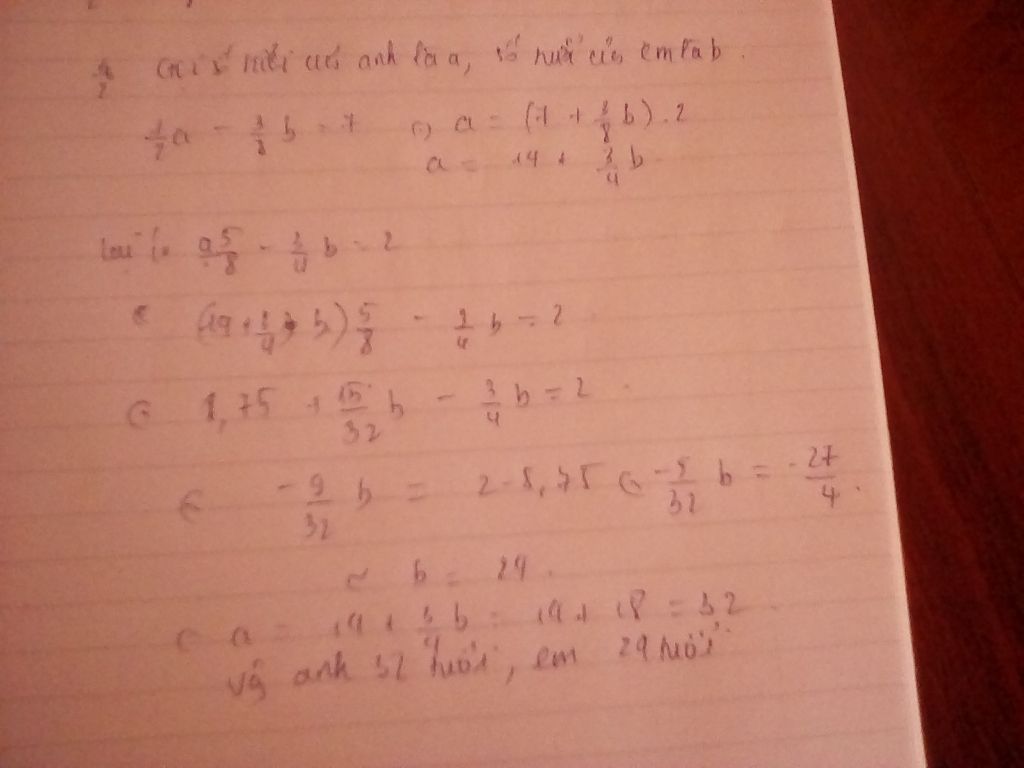 Gọi số tuổi của anh là a, số tuổi của em là b.
1/2 a - 3/8 b = 7 a = (7 + 3/8 b).2
a = 14 + 3/4 b
lại có a 5/8 - 3/4 b = 2
(14 + 3/4 b) 5/8 - 3/4 b = 2
8,75 + 15/32 b - 3/4 b = 2
-9/32 b = 2 - 8,75 -9/32 b = -27/4.
b = 24.
a = 14 + 3/4 b = 14 + 18 = 32
vậy anh 32 tuổi, em 24 tuổi.